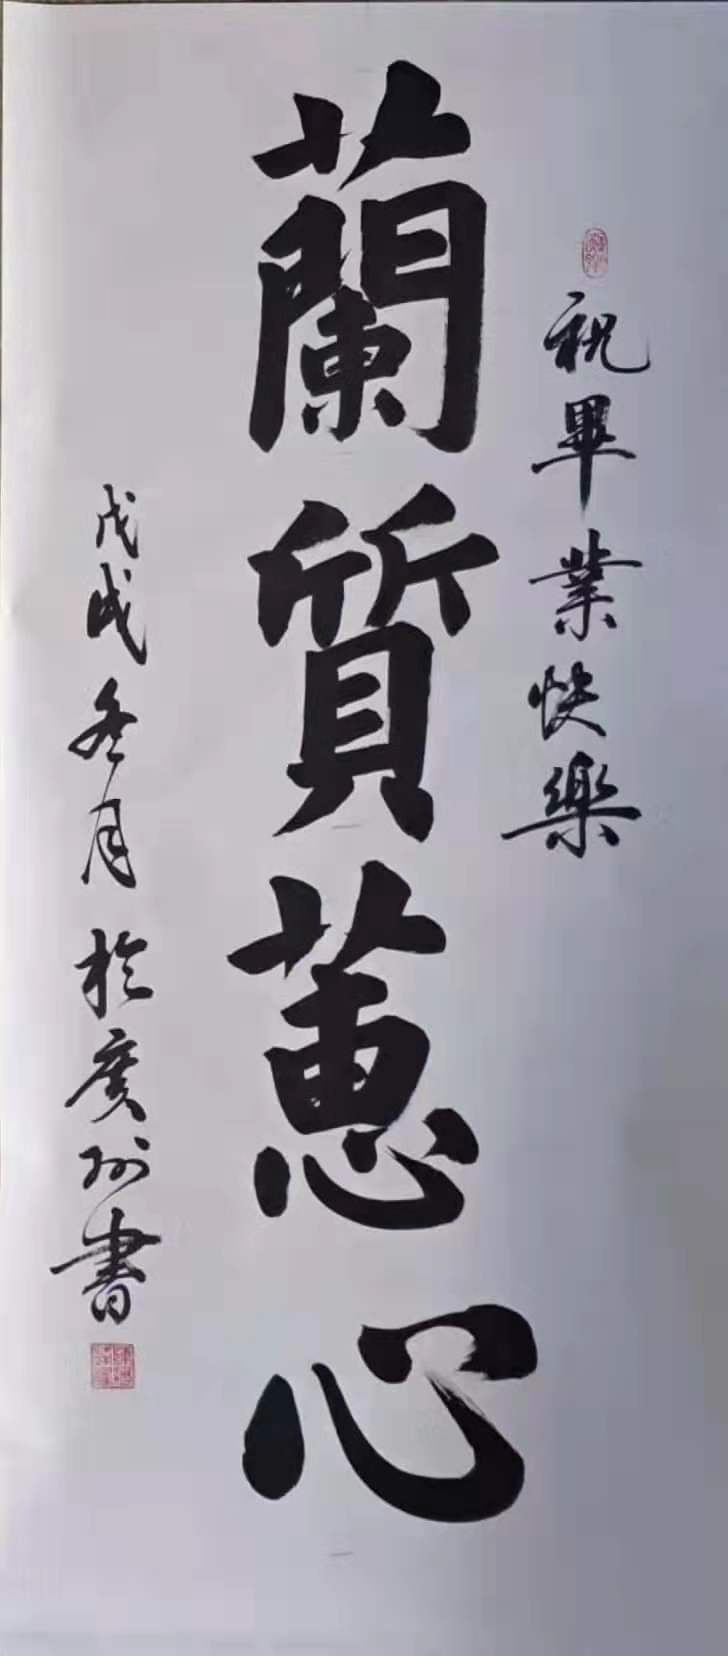 祝畢業快樂
蘭質蕙心
戊戌冬月於廣州書